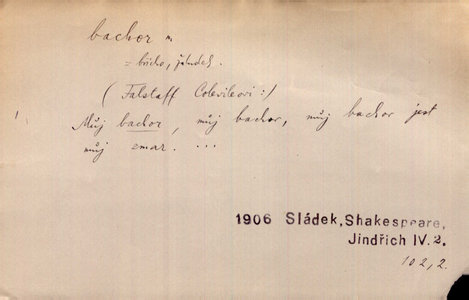 bachor m
= břicho, žaludek.
(Falstaff Colevileovi:)
Můj bachor, můj bachor, můj bachor jest
můj zmar. ...
1906 Sládek, Shakespeare,
Jindřich IV. 2.
102, 2.